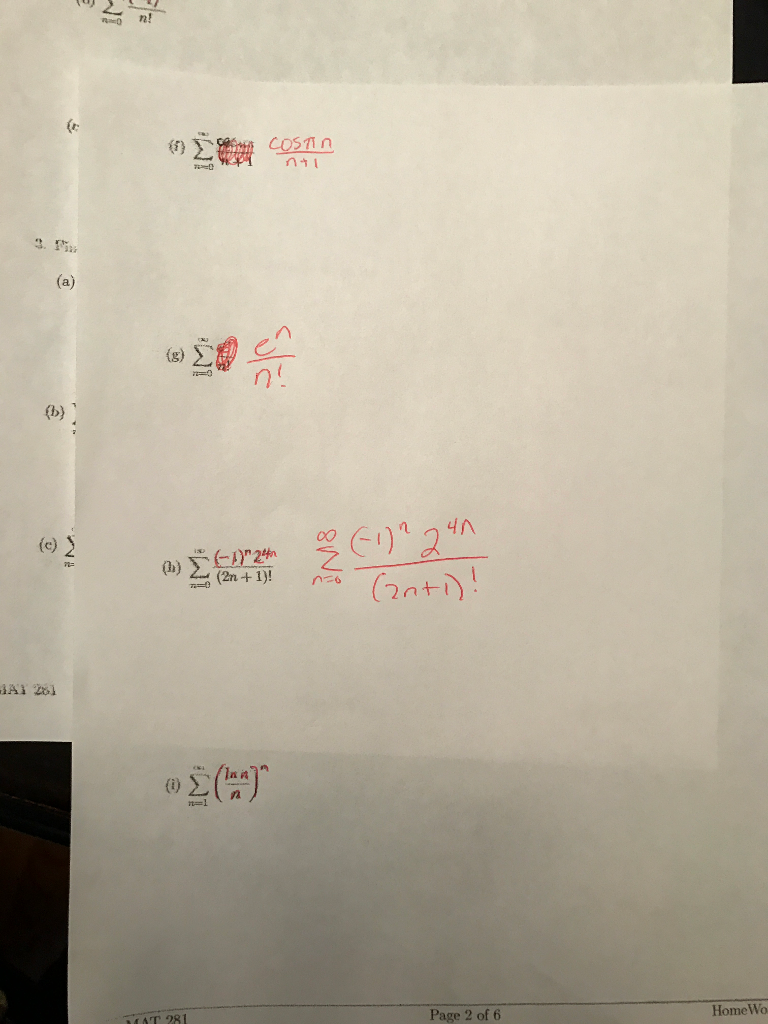 ∑ n=0 n!
(f) ∞ ∑ n=0 n+1 cosπn / n+1
3.
(a)
(g) ∞ ∑ n=0 e^n / n!
(b)
(c) ∑ n=
(h) ∞ ∑ n=0 (-1)^n 2^4n / (2n+1)! ∞ ∑ n=0 (-1)^n 2^4n / (2n+1)!
MAT 281
(i) ∞ ∑ n=1 (ln n / n)^n
MAT 281 Page 2 of 6 HomeWo